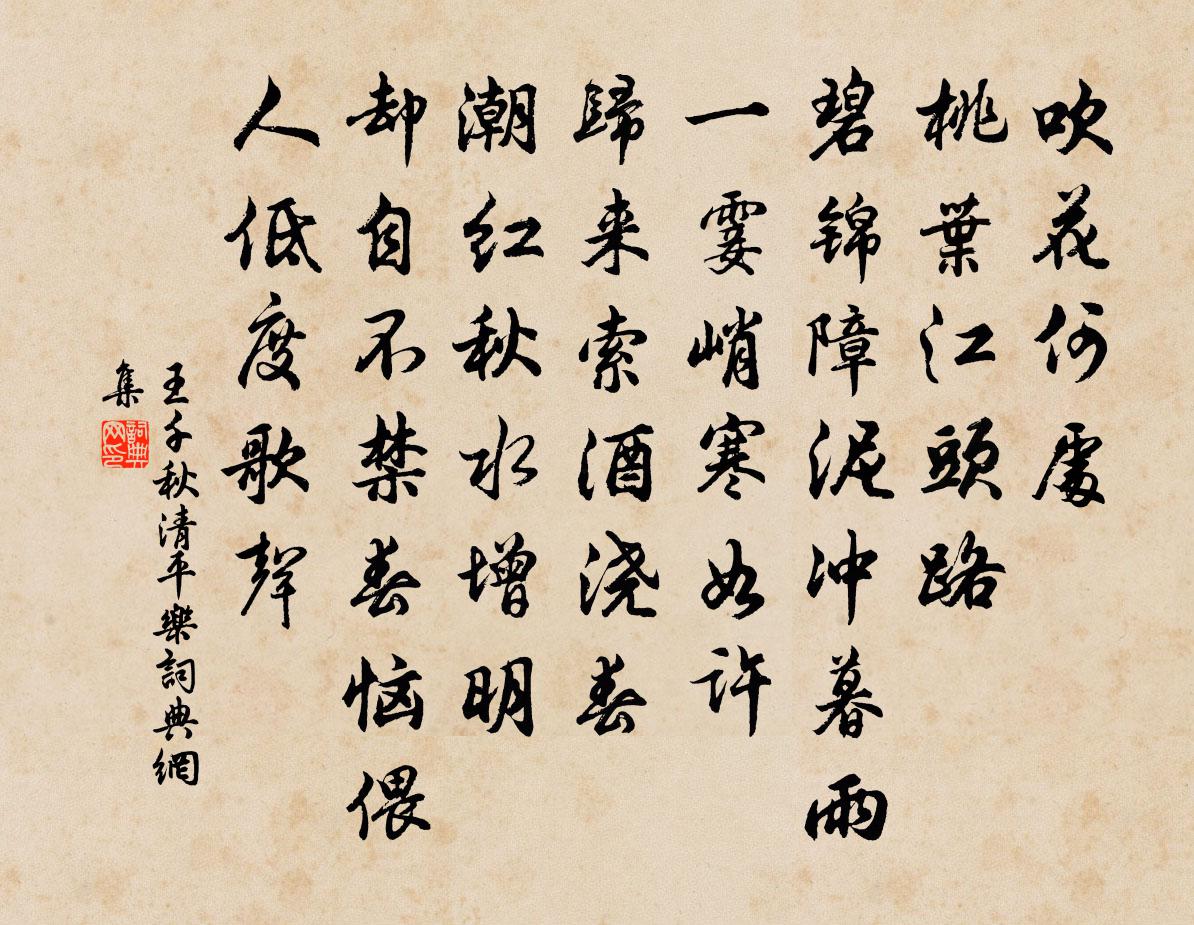 吹花何處
桃葉江頭路
碧锦障泥冲暮雨
一霎峭寒如许
歸来索酒浇春
潮红秋水增明
却自不禁春恼偎
人低度歌聲
王千秋清平樂詞典網
集
詞典网印